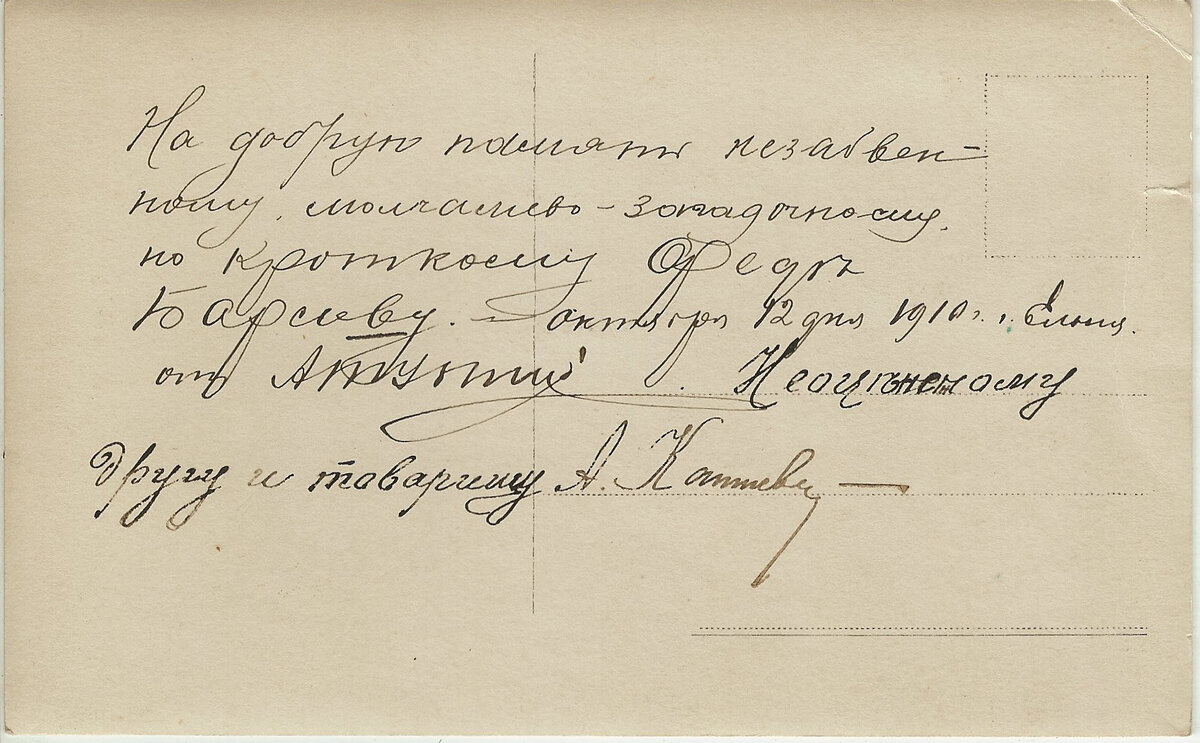 На добрую память незабвен-
ному, молчаливо-загадочному,
но кроткому Федѣ
Барсову. — октября 12 дня 1910 г. г. Ельня.
отъ
Неоцѣненному
другу и товарищу А.